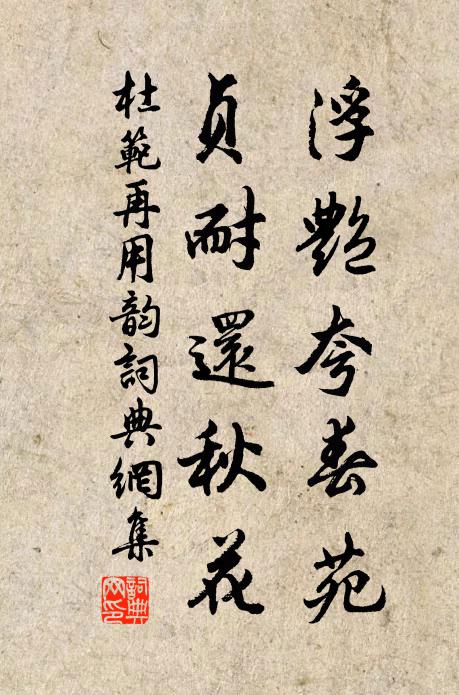 浮艷夸春苑
貞耐還秋花
杜範再用韵詞典網集
詞典網印